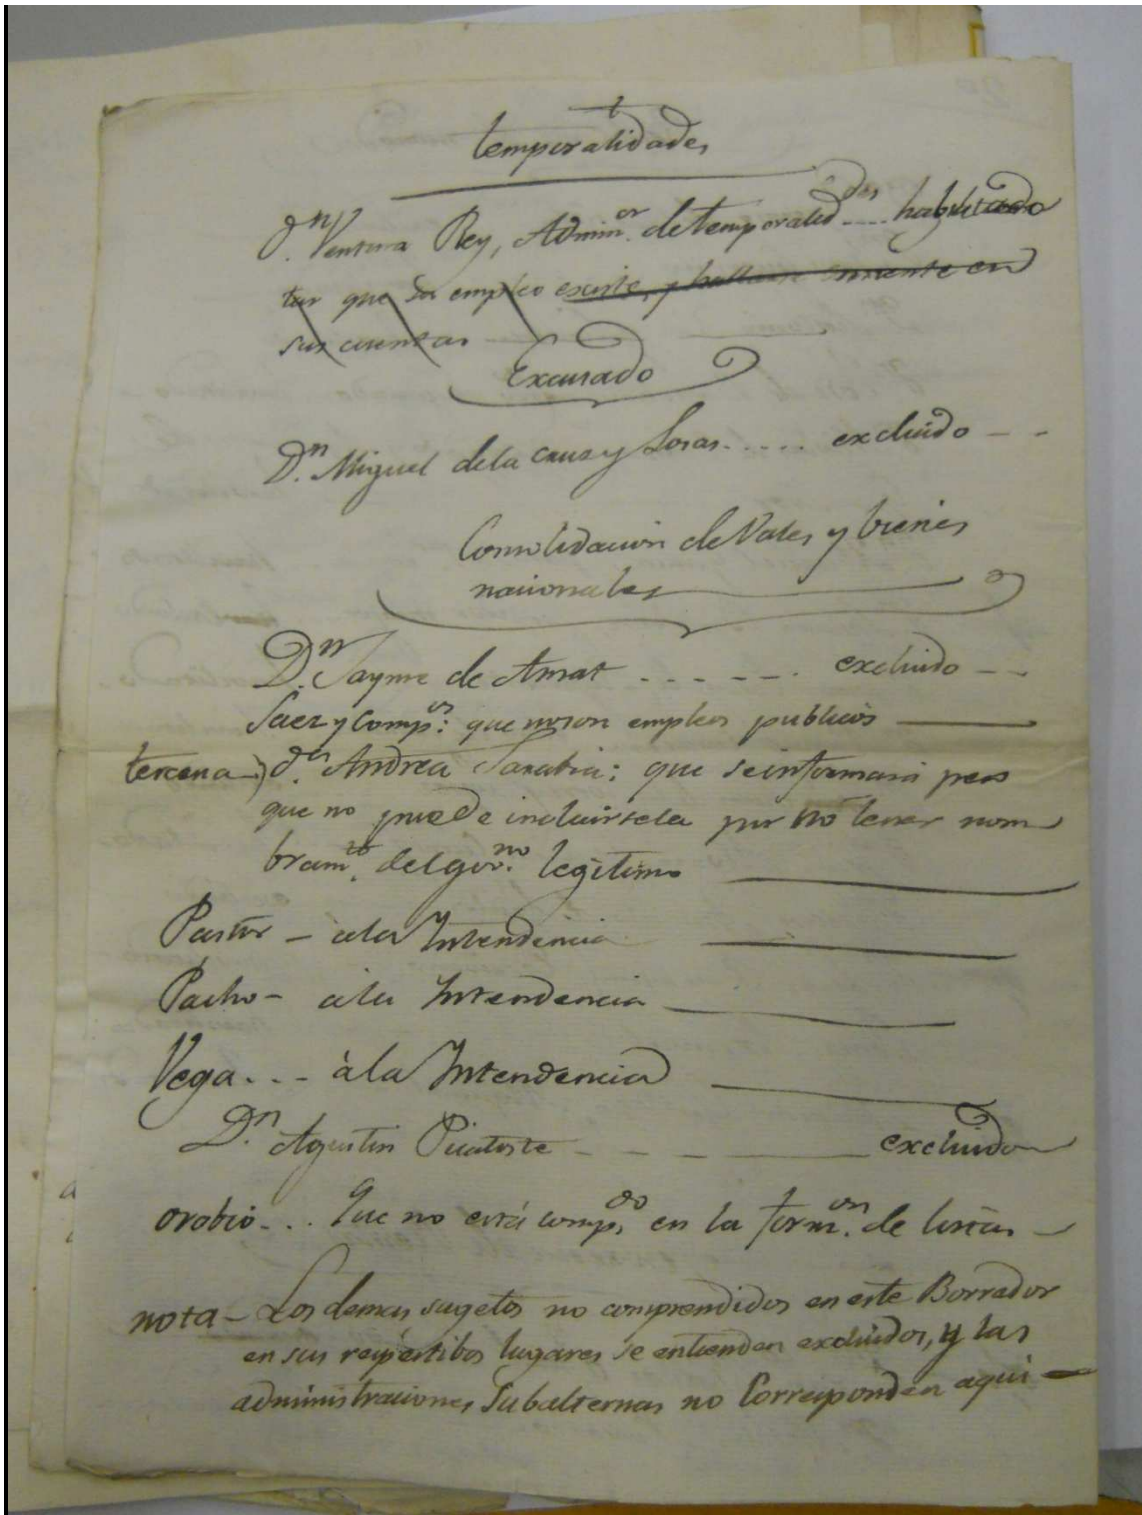 temporalidades
D.n Ventura Rey, Admin.or de temporalid.des .... habilitado
que su empleo existe, y hallarse en
sus cuentas
Excusado
D.n Miguel de la Cruz y Losas ..... excluido - -
Consolidacion de Vales y bienes
nacionales
D.n Jayme de Amat . - - - - - . excluido - -
Saez y Comp.s: que no son empleos publicos
tercena) d.a Andrea Sarabia: que se informará pero
que no puede incluirsela por no tener nom
bram.to del gov.no legitimo
Pastor - a la Intendencia
Pacho - a la Intendencia
Vega . - - à la Intendencia
D.n Agustin Picatoste - - - excluido
orobio - . . Que no está comp.do en la form.on de listas -
nota - Los demas sugetos no comprendidos en este Borrador
en sus respéctibos lugares se entienden excluidos, y las
administraciones Subalternas no Corresponden aqui -